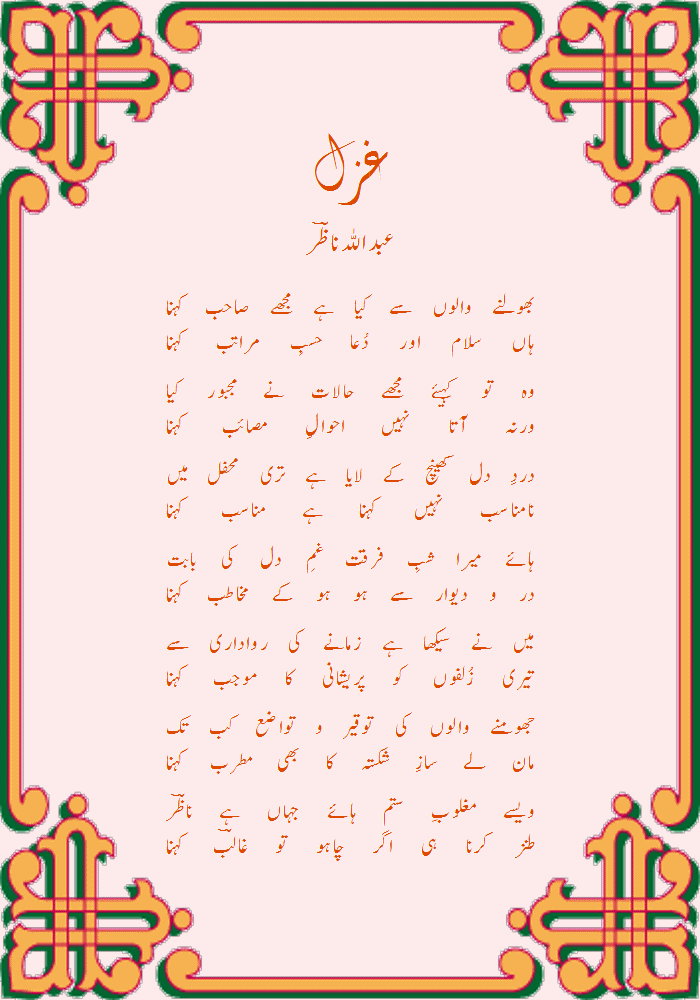 غزل
عبد اللہ ناظؔر
بھولنے والوں سے کیا ہے مجھے صاحب کہنا
ہاں سلام اور دُعا حسبِ مراتب کہنا
وہ تو کہیئے مجھے حالات نے مجبور کیا
ورنہ آتا نہیں احوالِ مصائب کہنا
دردِ دل کھینچ کے لایا ہے تری محفل میں
نامناسب نہیں کہنا ہے مناسب کہنا
ہائے میرا شبِ فرقت غمِ دل کی بابت
در و دیوار سے ہو ہو کے مخاطب کہنا
میں نے سیکھا ہے زمانے کی رواداری سے
تیری زُلفوں کو پریشانی کا موجب کہنا
جھومنے والوں کی توقیر و تواضع کب تک
مان لے سازِ شکستہ کا بھی مطرب کہنا
ویسے مغلوبِ ستم ہائے جہاں ہے ناظؔر
طنز کرنا ہی اگر چاہو تو غالبؔ کہنا